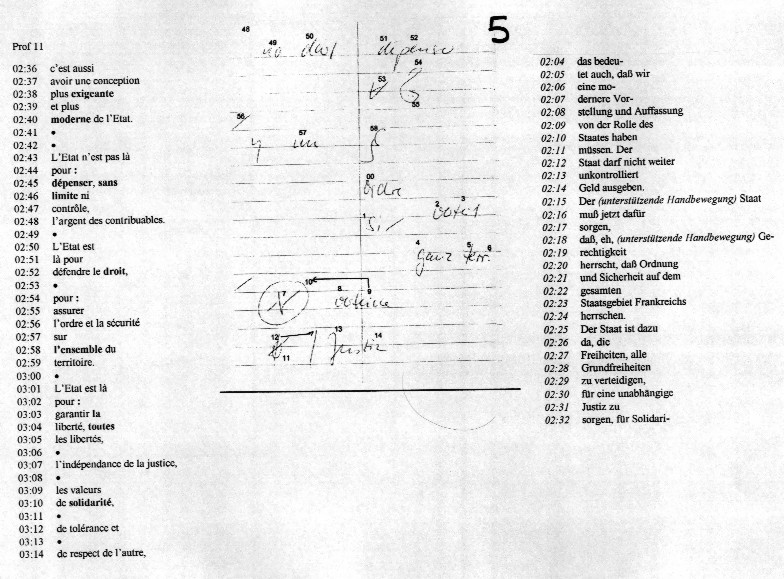 5
Prof 11
02:36 c'est aussi
02:37 avoir une conception
02:38 plus exigeante
02:39 et plus
02:40 moderne de l'Etat.
02:41 •
02:42 •
02:43 L'Etat n'est pas là
02:44 pour :
02:45 dépenser, sans
02:46 limite ni
02:47 contrôle,
02:48 l'argent des contribuables.
02:49 •
02:50 L'Etat est
02:51 là pour
02:52 défendre le droit,
02:53 •
02:54 pour :
02:55 assurer
02:56 l'ordre et la sécurité
02:57 sur
02:58 l'ensemble du
02:59 territoire.
03:00 •
03:01 L'Etat est là
03:02 pour :
03:03 garantir la
03:04 liberté, toutes
03:05 les libertés,
03:06 •
03:07 l'indépendance de la justice,
03:08 •
03:09 les valeurs
03:10 de solidarité,
03:11 •
03:12 de tolérance et
03:13 •
03:14 de respect de l'autre,
48
49 50 51 52
darf dépense
54
53
55
56
57 58
un
00
Ordre
1 2 3
Si
4 5 6
ganz Terr.
10 7 8 9
12 13 14
11
Justiz
02:04 das bedeu-
02:05 tet auch, daß wir
02:06 eine mo-
02:07 dernere Vor-
02:08 stellung und Auffassung
02:09 von der Rolle des
02:10 Staates haben
02:11 müssen. Der
02:12 Staat darf nicht weiter
02:13 unkontrolliert
02:14 Geld ausgeben.
02:15 Der (unterstützende Handbewegung) Staat
02:16 muß jetzt dafür
02:17 sorgen,
02:18 daß, eh, (unterstützende Handbewegung) Ge-
02:19 rechtigkeit
02:20 herrscht, daß Ordnung
02:21 und Sicherheit auf dem
02:22 gesamten
02:23 Staatsgebiet Frankreichs
02:24 herrschen.
02:25 Der Staat ist dazu
02:26 da, die
02:27 Freiheiten, alle
02:28 Grundfreiheiten
02:29 zu verteidigen,
02:30 für eine unabhängige
02:31 Justiz zu
02:32 sorgen, für Solidari-